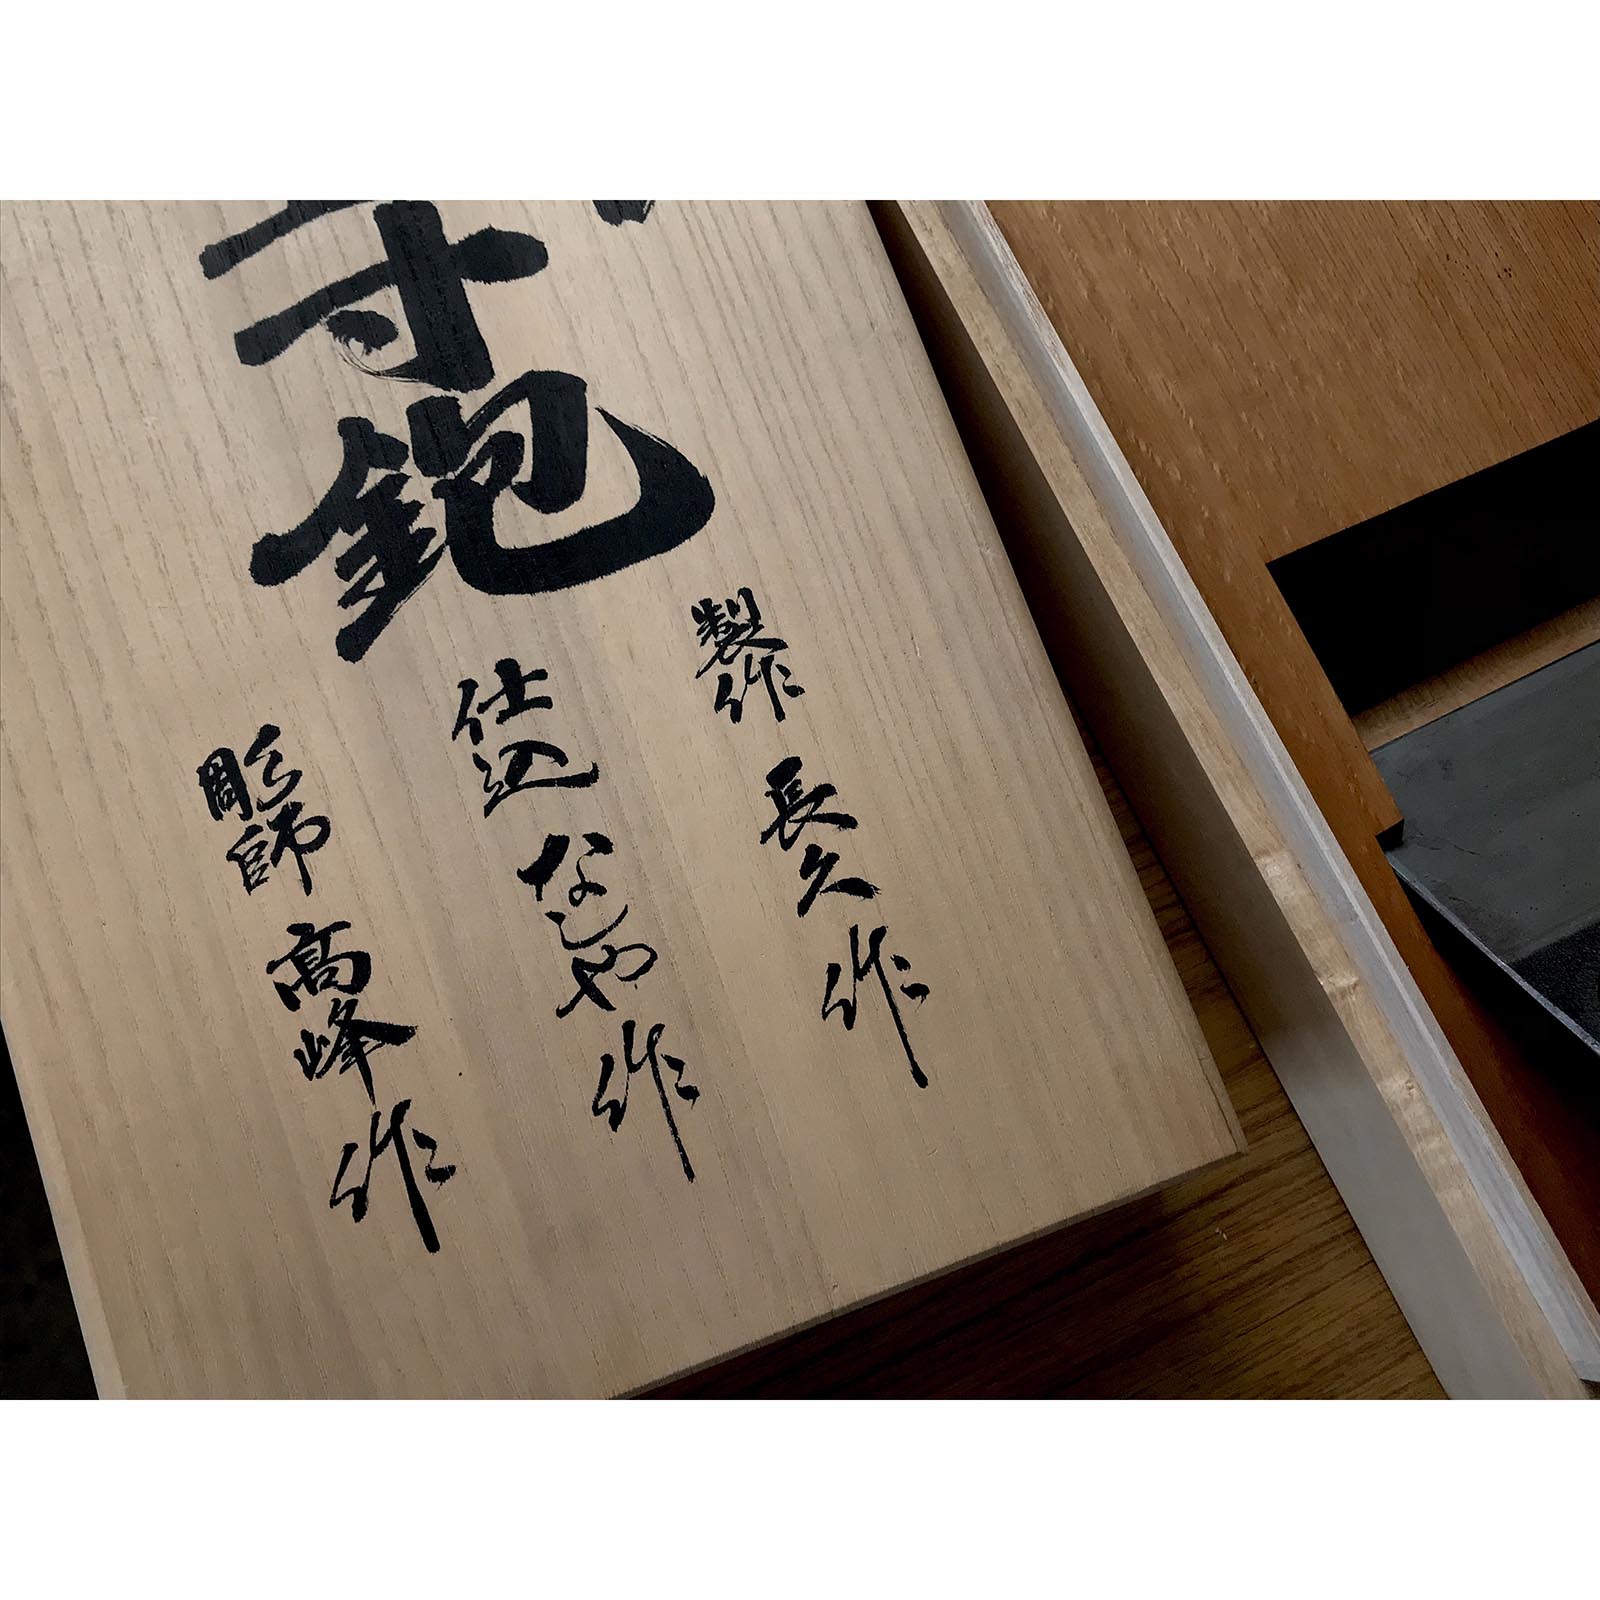 寸鉋
製作 長久作
仕込 なしや作
彫師 高峰作